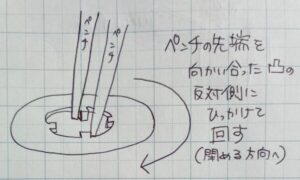 ペンチ
ペンチ
ペンチの先端を
向かい合った凸の
反対側に
ひっかけて
回す
(閉める方向へ)